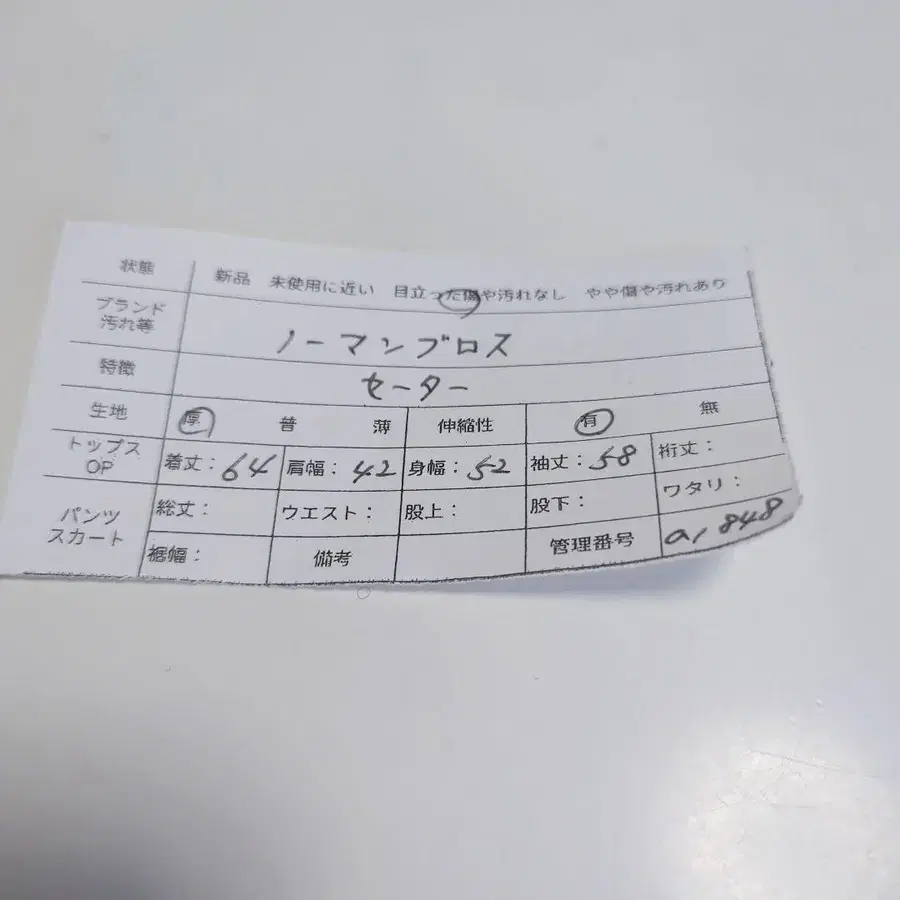 状態 新品 未使用に近い 目立った傷や汚れなし やや傷や汚れあり
ブランド
汚れ等 ノーマンブロス
特徴 セーター
生地 厚 普 薄 伸縮性 有 無
トップス
OP 着丈：64 肩幅：42 身幅：52 袖丈：58 裄丈：
パンツ
スカート 総丈： ウエスト： 股上： 股下： ワタリ：
裾幅： 備考 管理番号 a1848